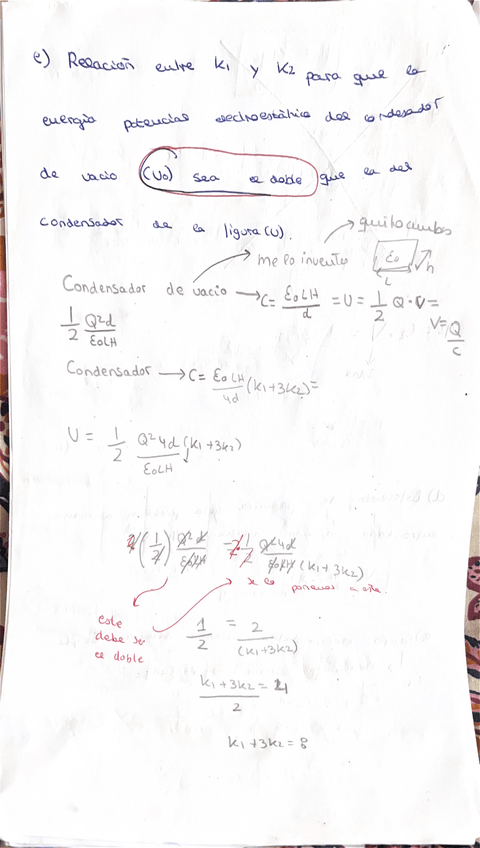 e) Relación entre K₁ y K₂ para que la
energía potencial electrostática del condesador
de vacío (U₀) sea el doble que la del
condensador de la figura (U).
quito ambos
me lo invento
ε₀
L
h
Condensador de vacio → C = ε₀LH/d = U = 1/2 Q·V =
V = Q/C
1/2 Q²d/ε₀LH
Condensador → C = ε₀LH/4d (k₁+3k₂) =
U = 1/2 Q²4d/ε₀LH (k₁+3k₂)
2(1/2) Q²d/ε₀LH = 2·1/2 Q²4d/ε₀LH (k₁+3k₂)
se lo ponemos a este.
este
debe ser
el doble
1/2 = 2/(k₁+3k₂)
k₁+3k₂/2 = 4
k₁+3k₂ = 8